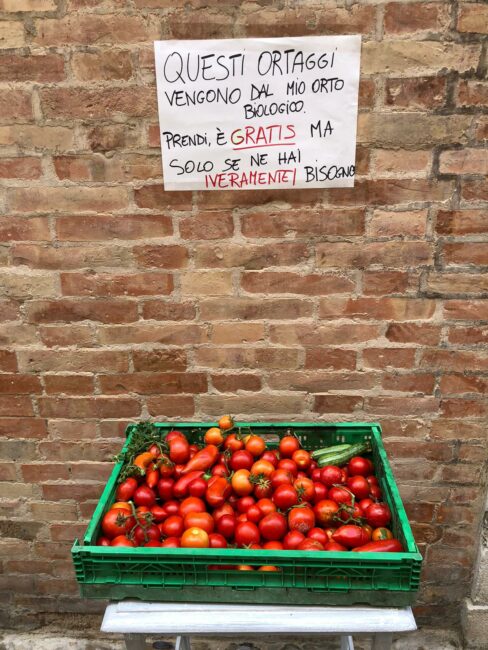 QUESTI ORTAGGI
VENGONO DAL MIO ORTO
BIOLOGICO.
PRENDI, È GRATIS MA
SOLO SE NE HAI
!VERAMENTE! BISOGNO